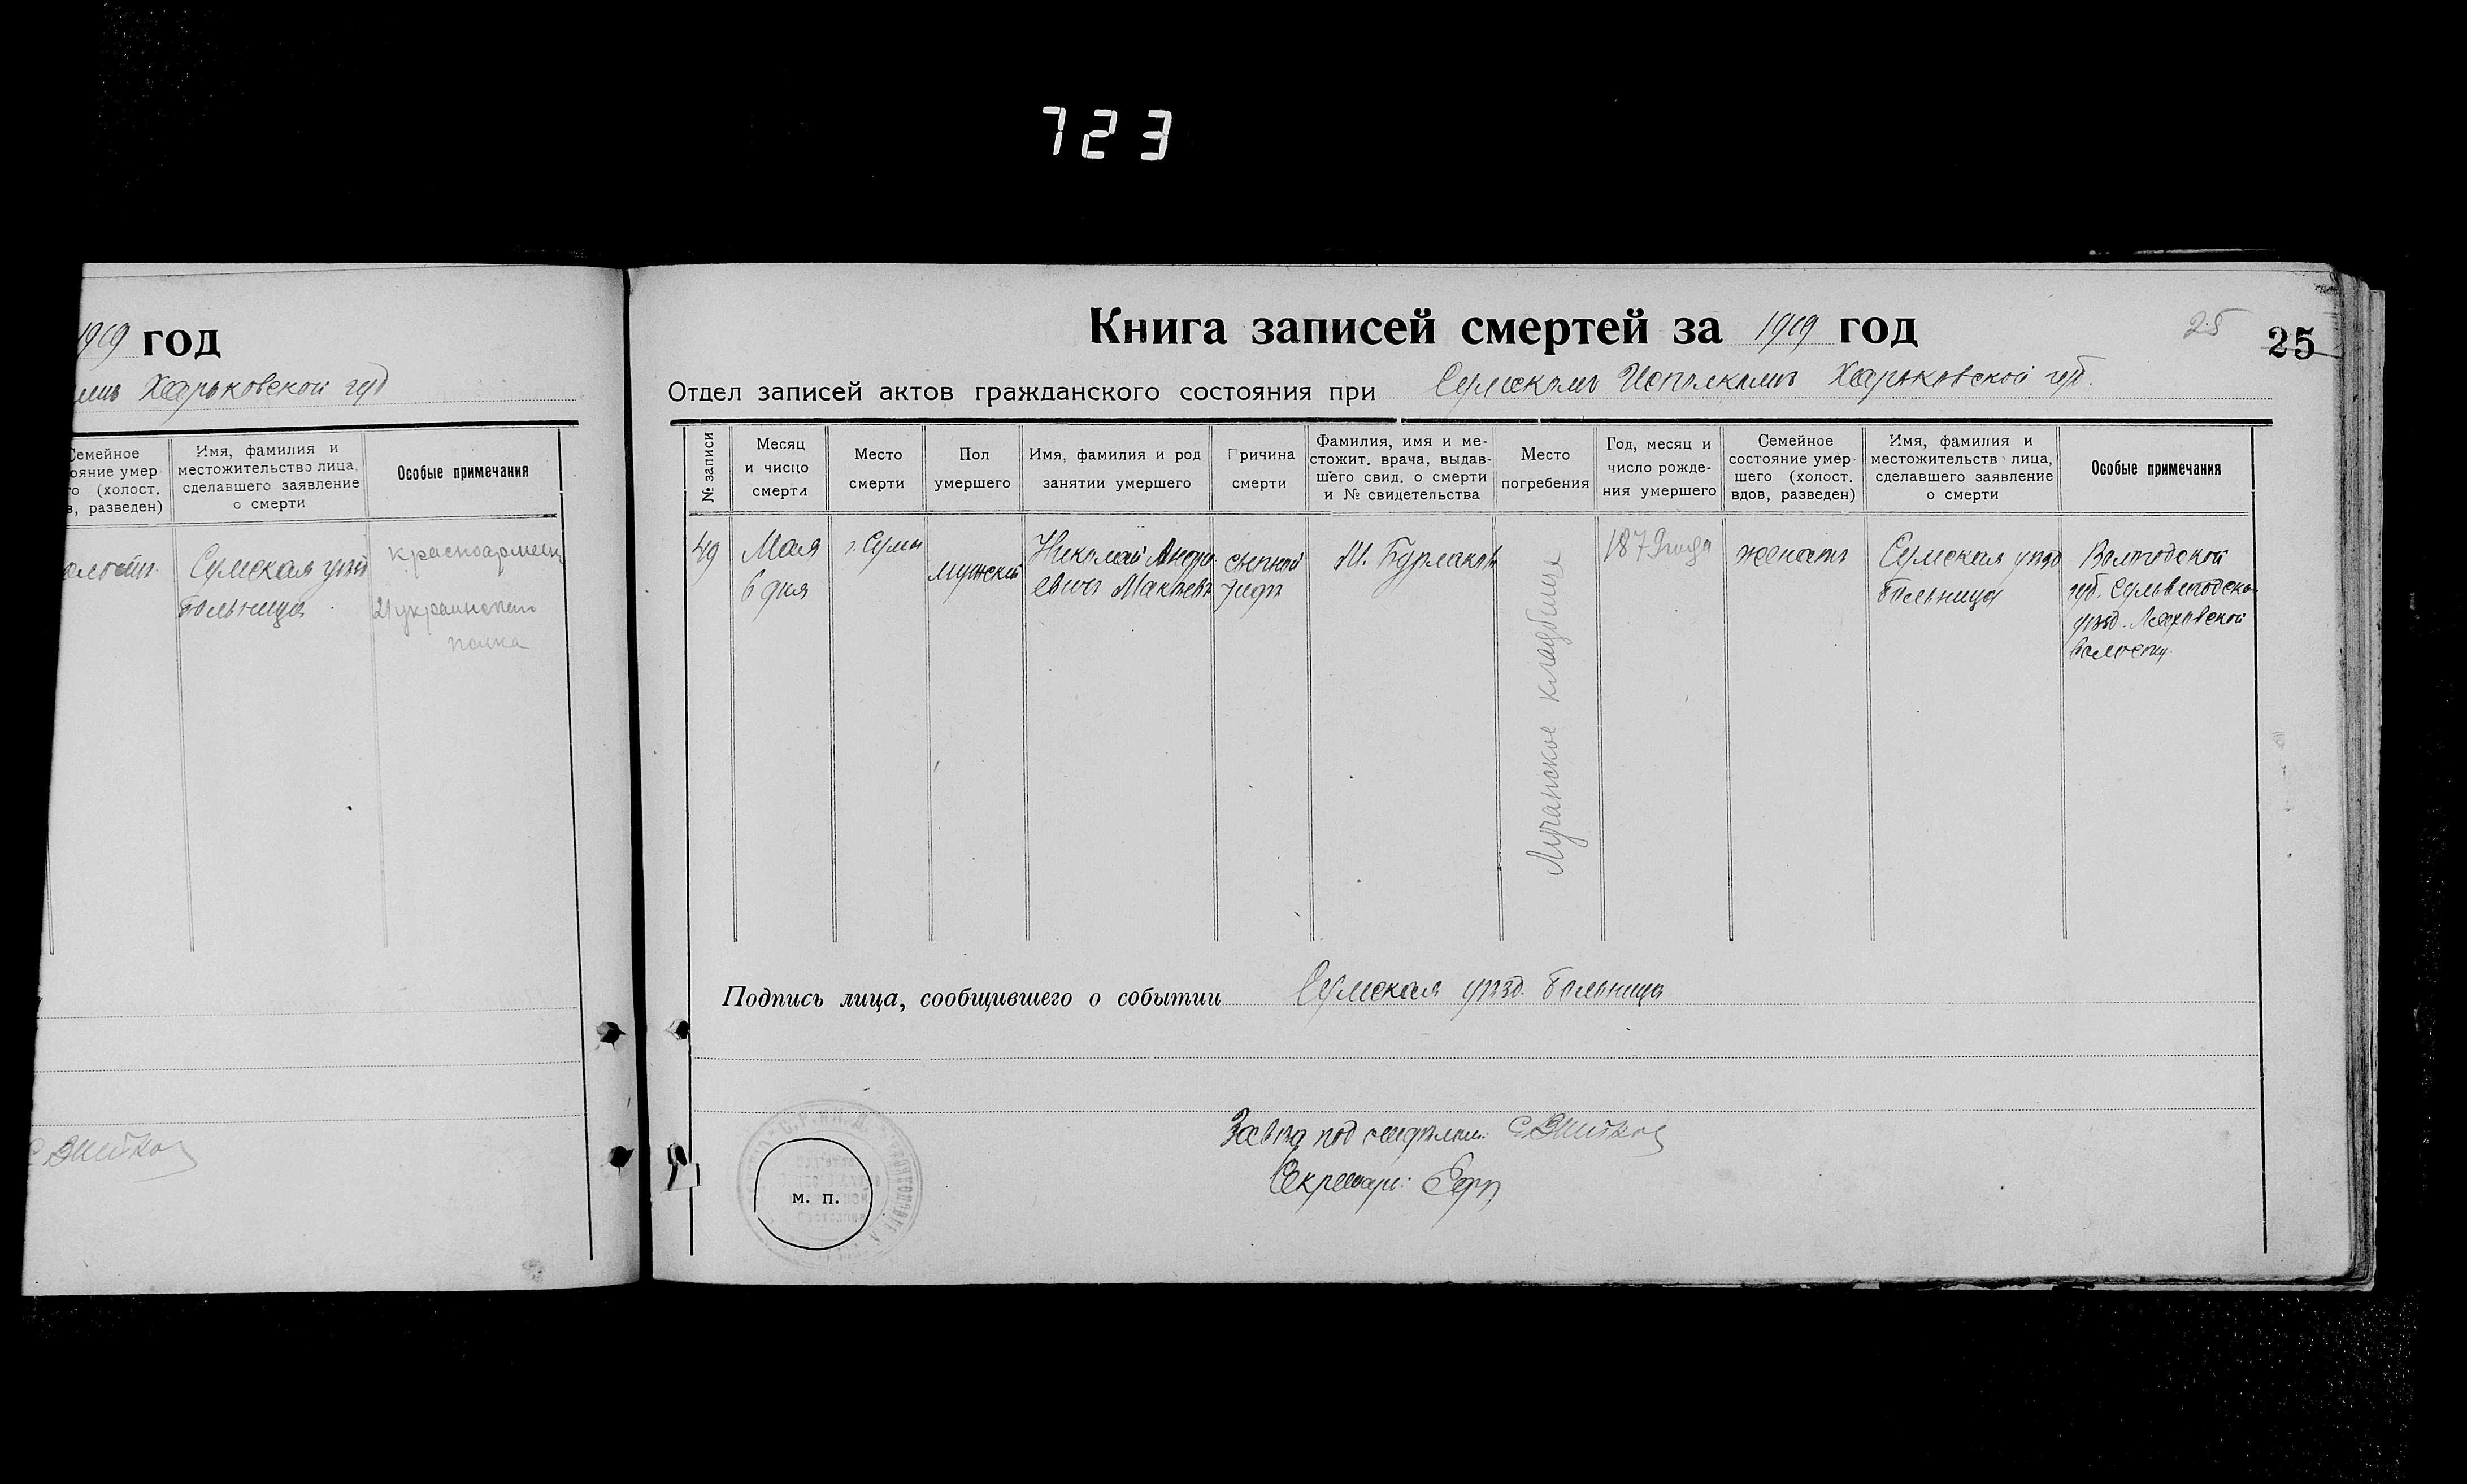 723
1919 год
Харьковской губ
Семейное
ояние умер
го (холост.
в, разведен)
Имя, фамилия и
местожительство лица,
сделавшего заявление
о смерти
Особые примечания
Сумская уезд
больница
красноармеец
21 украинского
полка
Книга записей смертей за 1919 год
25
25
Отдел записей актов гражданского состояния при Сумском Исполкомъ Харьковской губ.
№ записи
Месяц
и число
смерти
Место
смерти
Пол
умершего
Имя, фамилия и род
занятии умершего
Причина
смерти
Фамилия, имя и ме-
стожит. врача, выдав-
шего свид. о смерти
и № свидетельства
Место
погребения
Год, месяц и
число рожде-
ния умершего
Семейное
состояние умер-
шего (холост.
вдов, разведен)
Имя, фамилия и
местожительств лица,
сделавшего заявление
о смерти
Особые примечания
49
Мая
6 дня
г. Сумы
мужской
Николай Андре
евич
сыпной
тифъ
М. Бурлаков
Луганское кладбище
187 года
женатъ
Сумская уѣзд
больница
Вологодской
губ. Сольвыгодско
уѣзд.
волости.
Подпись лица, сообщившего о событии Сумская уѣзд. больница
м. п.
Завѣд под отдѣлом:
Секретарь: